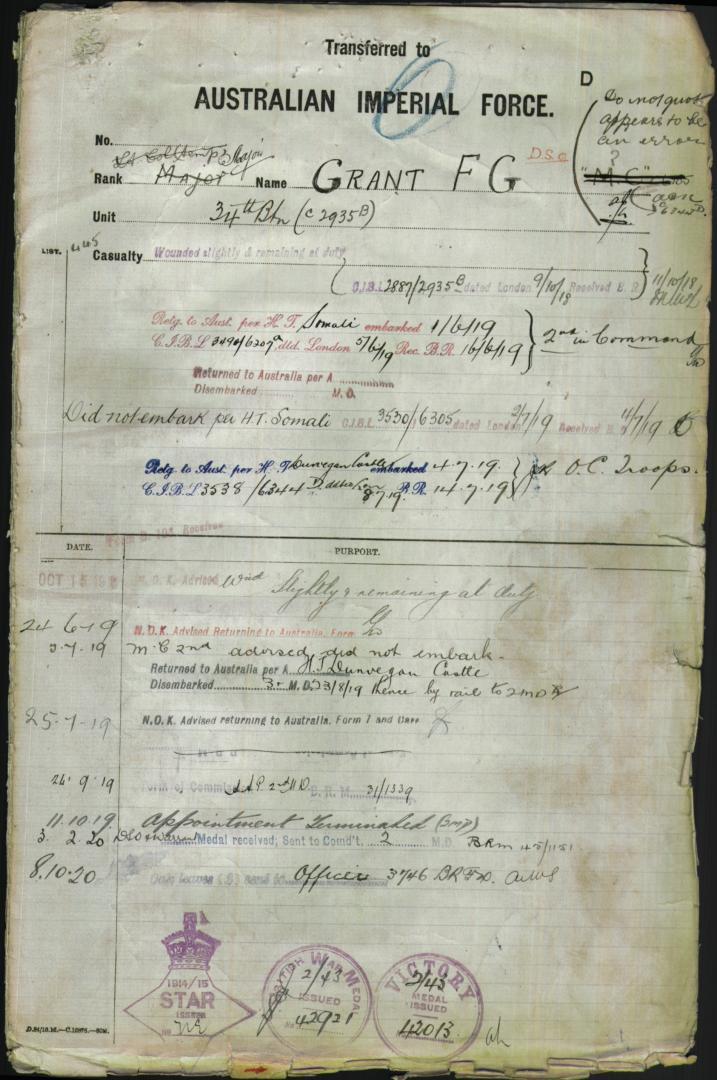 Transferred to
AUSTRALIAN IMPERIAL FORCE.
D
Do not quote
appears to be
an error
?
"M.C."
No.
Lt Col Major
Rank Major Name GRANT F G
D.S.O.
Unit 34th Btn (C 2935B)
LIST. 445 Casualty Wounded slightly & remaining at duty
C.I.B.L 2887/2935B dated London 9/10/18 Received B.R. 11/10/18
Retg. to Aust. per H.T. Somali embarked 1/6/19
C.I.B.L 3490/6207a dtd. London 5/6/19 Rec. B.R. 16/6/19
2nd in Command
Returned to Australia per A
Disembarked M.D.
Did not embark per H.T. Somali C.I.B.L 3530/6305 dated London 2/7/19 Received 4/7/19
Retg. to Aust. per H.T. Dunvegan Castle embarked 4.7.19.
C.I.B.L 3538/6344 8.7.19. B.R. 14.7.19
as O.C. Troops.
Form B. 103 Received
DATE. PURPORT.
OCT 15 191 N.O.K. Advised Wnd Slightly & remaining at duty
24 6-19 N.O.K. Advised Returning to Australia. Form
7.19 M.C 2nd advised did not embark.
Returned to Australia per A H.T. Dunvegan Castle
Disembarked 3 M.D. 23/8/19 thence by rail to 2 MD
25-7-19 N.O.K. Advised returning to Australia. Form 1 and Date
24.9.19 Form of Commiss 2nd M.D. B.R.M. 31/1339
11.10.19. Appointment Terminated (2MD)
3. 2. 20 DSO & Warrant Medal received; Sent to Comd't. 2 M.D BRM 45/1151
8.10.20 Oak leaves sent to Officer 3746 BRM
1914/15
STAR
ISSUED
No NE
BRITISH WAR MEDAL
2/43
ISSUED
No 42921
VICTORY
2/43
MEDAL
ISSUED
42013
D.84/16.16.—C.10876.—50M.